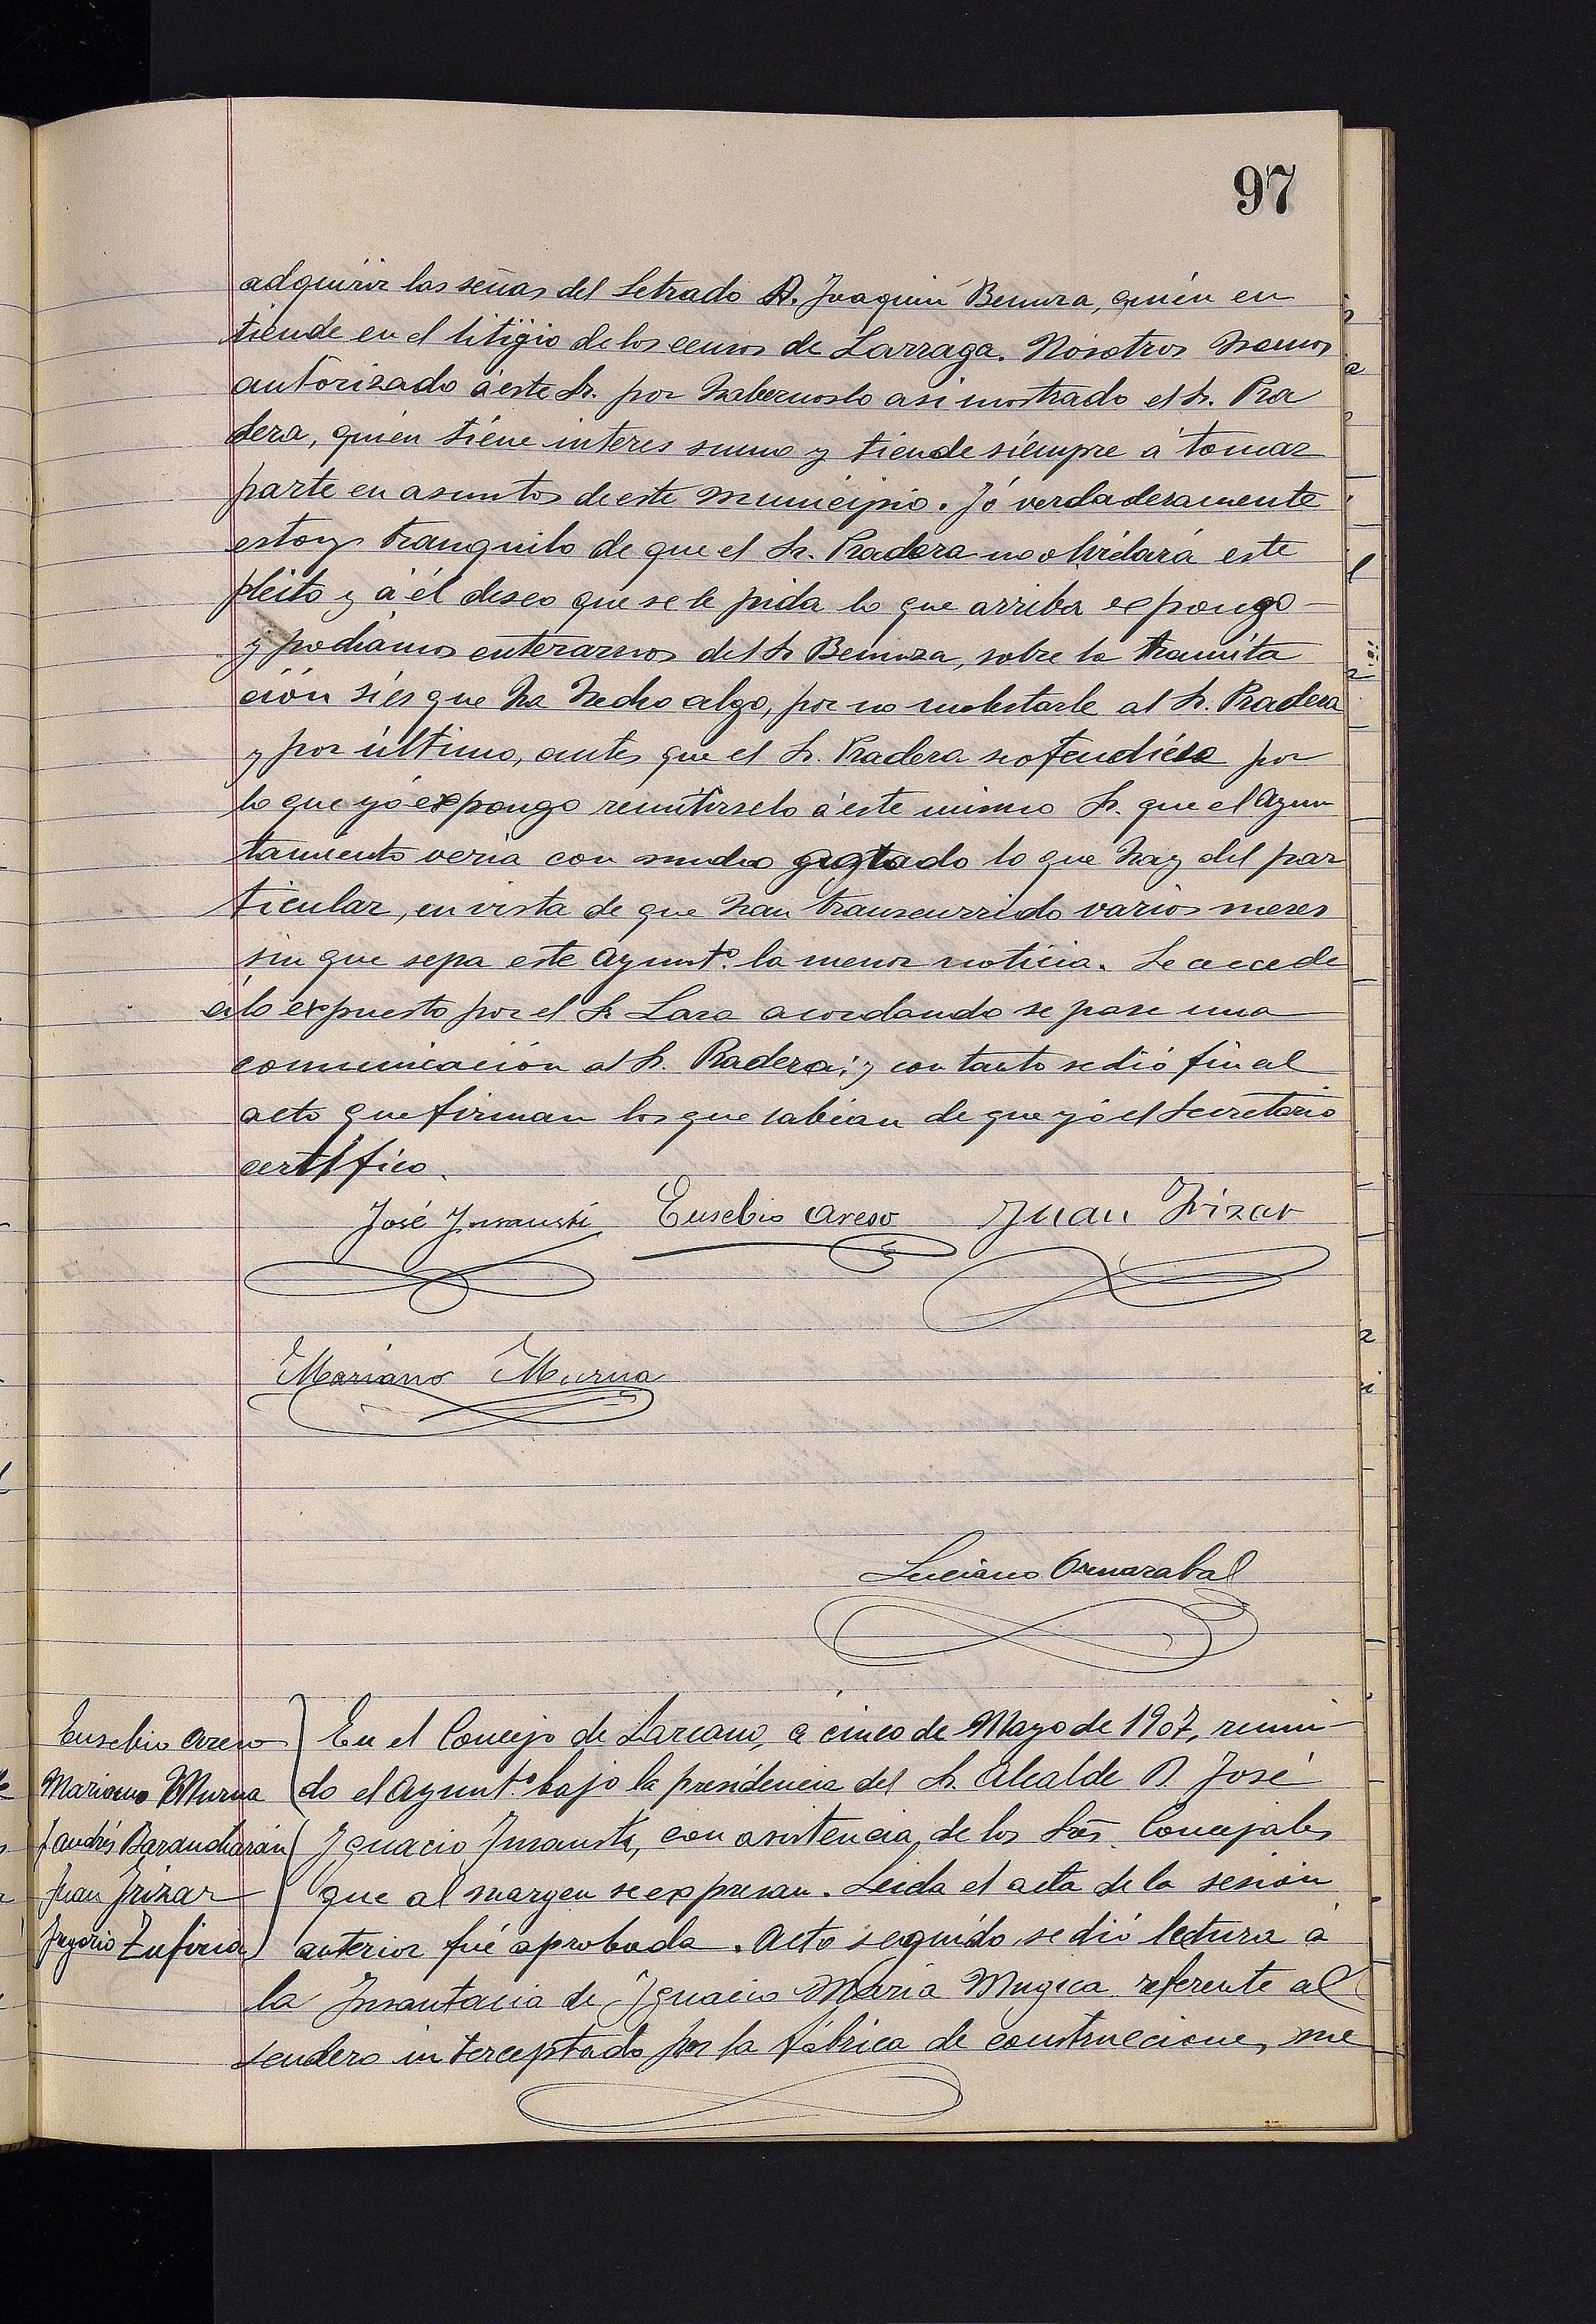 97
adquirir las señas del Letrado D. Joaquin Benura, quién en
tiende en el litigio de los censos de Larraga. Nosotros hemos
autorizado á este Sr. por habernoslo asi mostrado el Sr. Pra
dera, quién tiene interes sumo y tiende siempre á tomar
parte en asuntos de este municipio. Yó verdaderamente
estoy tranquilo de que el Sr. Pradera no olvidará este
pleito y á él deseo que se le pida lo que arriba expongo
y podiamos enterarnos del Sr. sobre la tramita
ción si es que ha hecho algo, por no molestarle al Sr. Pradera
y por último, antes que el Sr. Pradera se ofendiése por
lo que yo expongo remitirselo á este mismo Sr. que el Ayun
tamiento veria con mucho gustado lo que hay del par
ticular, en vista de que han transcurrido varios meses
sin que sepa este Ayunt.º la menor noticia. Se accede
á lo expuesto por el Sr. Lasa acordando se pase una
comunicación al Sr. Pradera; y con tanto se dió fin al
acto que firman los que sabian de que yó el Secretario
certifico.
José Insausti Eusebio Areso Juan Irizar
Mariano Murua
Luciano Ormazabal
Eusebio Areso
Mariano Murua
Andrés Barandiarán
Juan Irizar
Gregorio Zufiria
En el Concejo de Lazcano, á cinco de Mayo de 1907, reuni-
do el Ayunt.º bajo la presidencia del Sr. Alcalde D. José
Ignacio Insausti, con asistencia, de los Srs. Concejales
que al margen se expresan. Leida el acta de la sesión
anterior fué aprobada. Acto seguido se dió lectura á
la Insantacia de Ignacio Maria Mugica referente al
sendero interceptado por la fábrica de construcciones, me